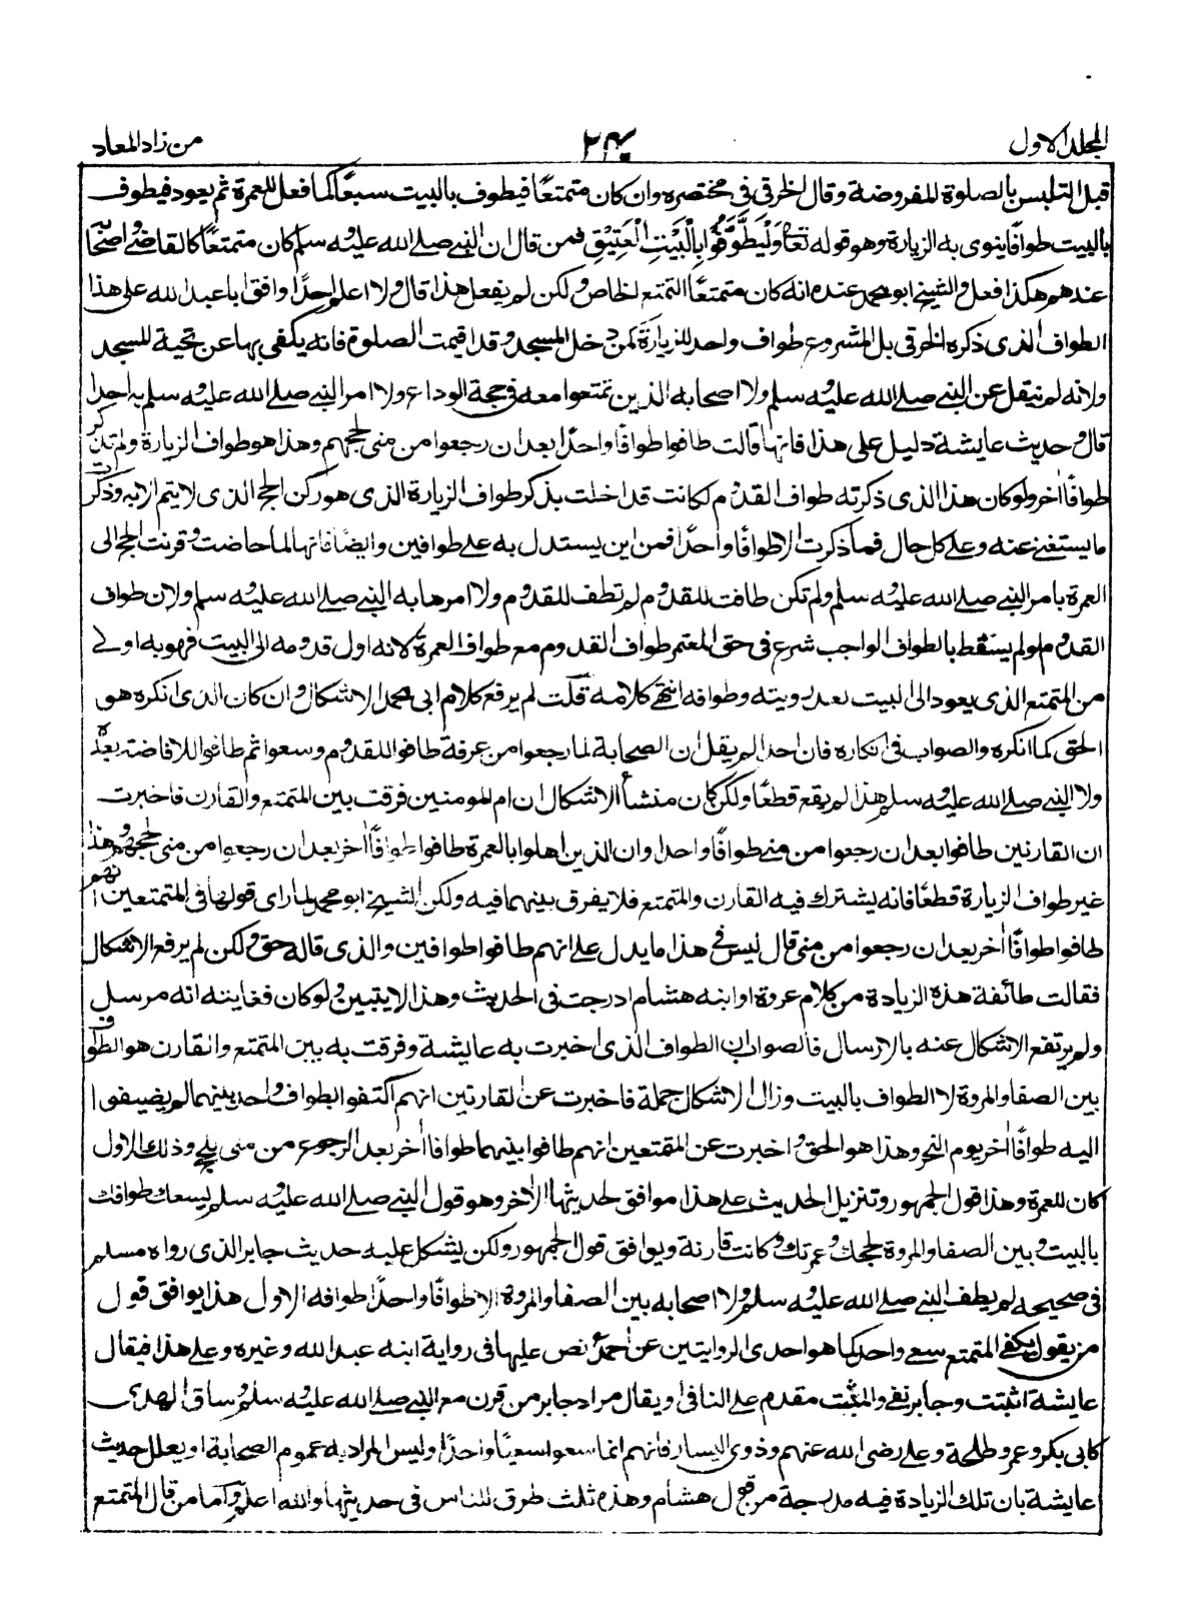 المجلد الاول
من زاد المعاد
قبل التلبس بالصلوة المفروضة وقال الخرقي في مختصره وان كان متمتعًا فيطوف بالبيت سبعًا كما فعل للعمرة ثم يعود فيطوف
بالبيت طوافًا ينوى به الزيارة وهو قوله تعا وَلْيَطَّوَّفُوا بِالْبَيْتِ الْعَتِيْقِ فمن قال ان النبي صلے الله عليه وسلم كان متمتعًا كالقاضے واصحابه
عندهم هكذا فعل والشيخ ابو محمد عنده انه كان متمتعًا التمتع الخاص ولكن لم يفعل هذا قال ولا اعلم احدًا وافق ابا عبد الله على هذا
الطواف الذى ذكره الخرقى بل المشروع طواف واحد للزيارة كمن دخل المسجد وقد اقيمت الصلوة فانه يكفى بها عن تحية المسجد
ولانه لم ينقل عن النبي صلے الله عليه وسلم ولا اصحابه الذين تمتعوا معه في حجة الوداع ولا امر النبي صلے الله عليه وسلم به احدا
قال وحديث عايشة دليل على هذا فانها قالت طافوا طوافًا واحدًا بعد ان رجعوا من منى لحجهم وهذا هو طواف الزيارة ولم تذكر
طوافًا اخر ولو كان هذا الذى ذكرته طواف القدوم لكانت قد اخلت بذكر طواف الزيارة الذى هو ركن الحج الذى لا يتم الا به وذكرت
ما يستغنے عنه وعلے كل حال فما ذكرت الا طوافًا واحدًا فمن اين يستدل به علے طوافين وايضًا فانها لما حاضت وقرنت الحج الى
العمرة بامر النبي صلے الله عليه وسلم ولم تكن طافت للقدوم لم تطف للقدوم ولا امرها به النبي صلے الله عليه وسلم ولان طواف
القدوم لو لم يسقط بالطواف الواجب شرع في حق المعتمر طواف القدوم مع طواف العمرة لانه اول قدومه الى البيت فهو به اولے
من المتمتع الذى يعود الى البيت بعد رويته وطوافه انتهے كلامه قلت لم يرفع كلام ابى محمد الاشكال وان كان الذى انكره هو
الحق كما انكره والصواب في انكاره فان احدا لم يقل ان الصحابة لما رجعوا من عرفة طافوا للقدوم وسعوا ثم طافوا للافاضة بعده
ولا النبي صلے الله عليه وسلم هذا لم يقع قطعًا ولكن كان منشأ الاشكال ان ام المومنين فرقت بين المتمتع والقارن فاخبرت
ان القارنين طافوا بعد ان رجعوا من منے طوافًا واحدا وان الذين اهلوا بالعمرة طافوا طوافًا اخر بعد ان رجعوا من منى لحجهم وهذا
غير طواف الزيارة قطعًا فانه يشترك فيه القارن والمتمتع فلا يفرق بينهما فيه ولكن الشيخ ابو محمد لما راى قولها في المتمتعين انهم
طافوا طوافًا اخر بعد ان رجعوا من منى قال ليس في هذا ما يدل علے انهم طافوا طوافين والذى قاله حق ولكن لم يرفع الاشكال
فقالت طائفة هذه الزيادة من كلام عروة او ابنه هشام ادرجت في الحديث وهذا لا يتبين ولو كان فغايته انه مرسل
ولم يرتفع الاشكال عنه بالارسال فالصواب ان الطواف الذى اخبرت به عايشة وفرقت به بين المتمتع والقارن هو الطواف
بين الصفا والمروة لا الطواف بالبيت وزال الاشكال جملة فاخبرت عن القارنين انهم اكتفوا بطواف واحد بينهما لم يضيفوا
اليه طوافًا اخر يوم النحر وهذا هو الحق واخبرت عن المتمتعين انهم طافوا بينهما طوافا اخر بعد الرجوع من منى للحج وذلك الاول
كان للعمرة وهذا قول الجمهور وتنزيل الحديث علے هذا موافق لحديثها الاخر وهو قول النبي صلے الله عليه وسلم يسعك طوافك
بالبيت وبين الصفا والمروة لحجك وعمرتك وكانت قارنة ويوافق قول الجمهور ولكن يشكل عليه حديث جابر الذى رواه مسلم
في صحيحه لم يطف النبي صلے الله عليه وسلم ولا اصحابه بين الصفا والمروة الا طوافًا واحدًا طوافه الاول هذا يوافق قول
من يقول يكفے المتمتع سعى واحد كما هو احدى الروايتين عن احمد نص عليها في رواية ابنه عبد الله وغيره وعلى هذا فيقال
عايشة اثبتت وجابر نفے والمثبت مقدم علے النافى او يقال مراد جابر من قرن مع النبي صلے الله عليه وسلم وساق الهدى
كابى بكر وعمر وطلحة وعلى رضى الله عنهم وذوى اليسار فانهم انما سعوا سعيًا واحدًا وليس المراد به عموم الصحابة او يعلل حديث
عايشة بان تلك الزيادة فيه مدرجة من قول هشام وهذه ثلث طرق للناس في حديثها والله اعلم واما من قال المتمتع